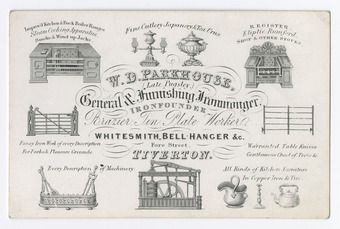 Improved Kitchen & Back Boiler Ranges
Steam Cooking Apparatus
Smoke & Wind up Jacks
Fine Cutlery Japanery & Tea Urns
REGISTER
Eliptic Rumford
SHOP & OTHER STOVES
W. D. PARKHOUSE,
(Late Pugsley)
General & Furnishing Ironmonger,
IRONFOUNDER
Brazier Tin Plate Worker
WHITESMITH, BELL-HANGER &c.
Fore Street,
TIVERTON.
Fancy Iron Work of every Description
For Parks & Pleasure Grounds
Warranted Table Knives
Gentlemens Chest of Tools &c
Every Description of Machinery
All Kinds of Kitchen Furniture
In Copper Iron & Tin